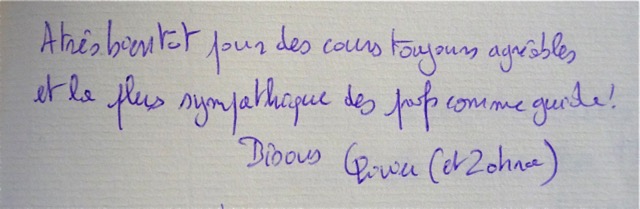 A très bientôt pour des cours toujours agréables
et la plus sympathique des profs comme guide!
Bisous (et Zohra)